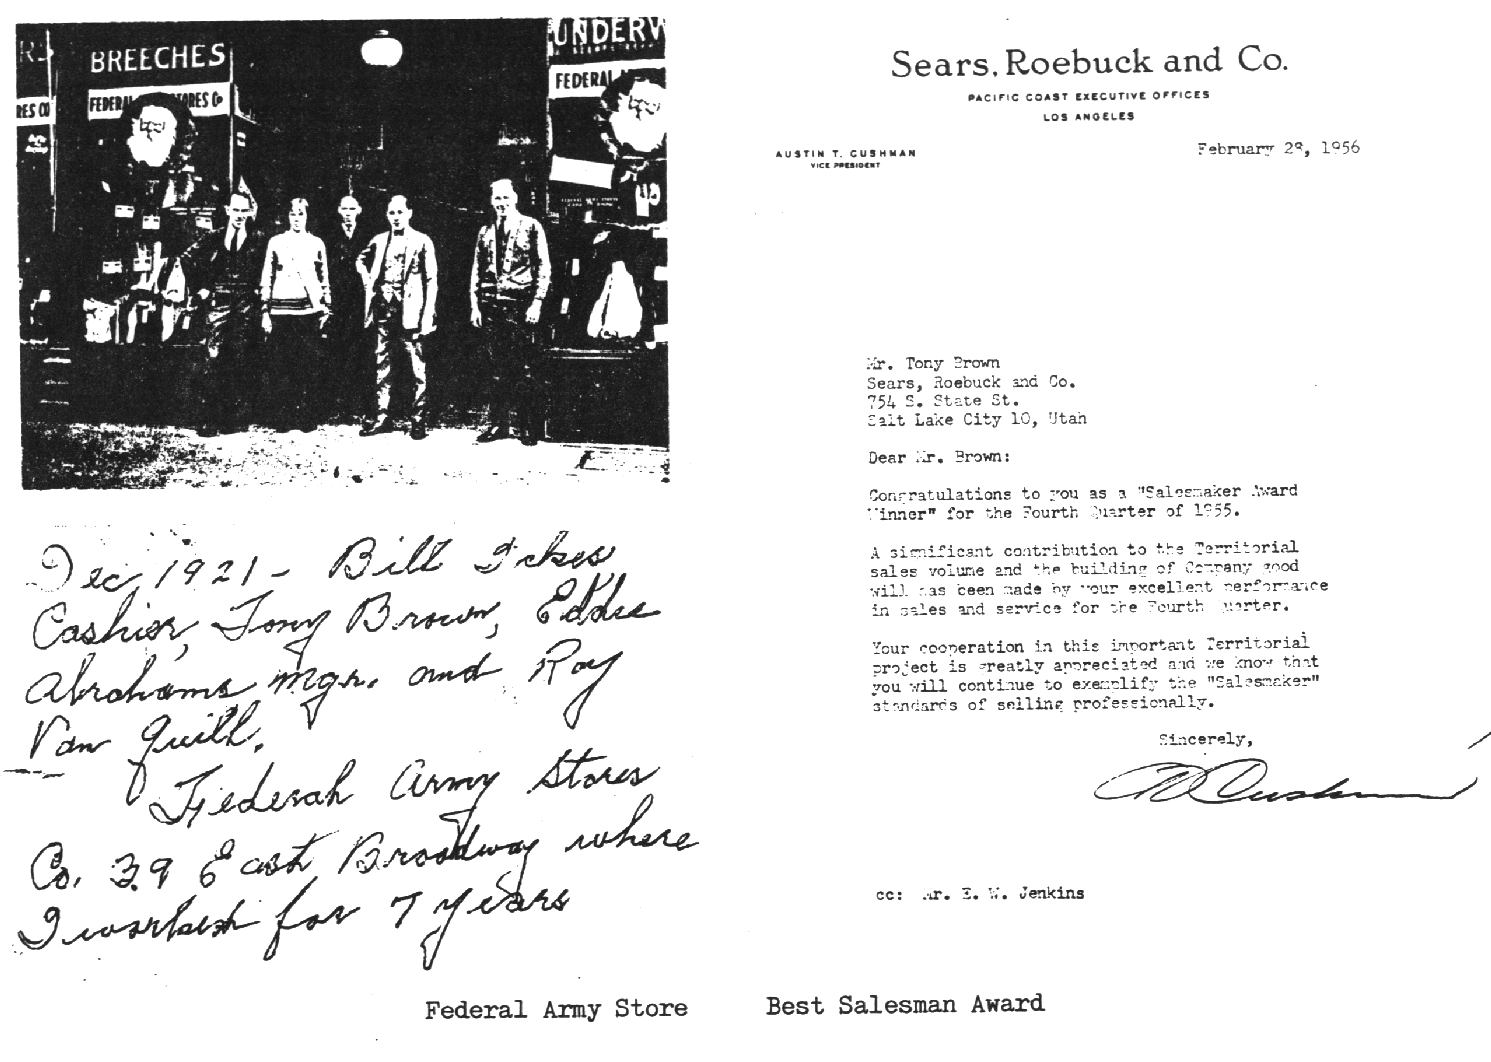 BREECHES
UNDERW
FEDERAL
RES CO
FEDERAL STORES Co
Dec, 1921 - Bill Ickes
Cashier, Tony Brown, Eddie
Abrahams Mgr. and Roy
Van Guill.
Federal Army Stores
Co. 39 East Broadway where
I worked for 7 years
Federal Army Store
Sears, Roebuck and Co.
PACIFIC COAST EXECUTIVE OFFICES
LOS ANGELES
AUSTIN T. CUSHMAN
VICE PRESIDENT
February 28, 1956
Mr. Tony Brown
Sears, Roebuck and Co.
754 S. State St.
Salt Lake City 10, Utah
Dear Mr. Brown:
Congratulations to you as a "Salesmaker Award
Winner" for the Fourth Quarter of 1955.
A significant contribution to the Territorial
sales volume and the building of Company good
will has been made by your excellent performance
in sales and service for the Fourth Quarter.
Your cooperation in this important Territorial
project is greatly appreciated and we know that
you will continue to exemplify the "Salesmaker"
standards of selling professionally.
Sincerely,
Cushman
cc: Mr. E. W. Jenkins
Best Salesman Award